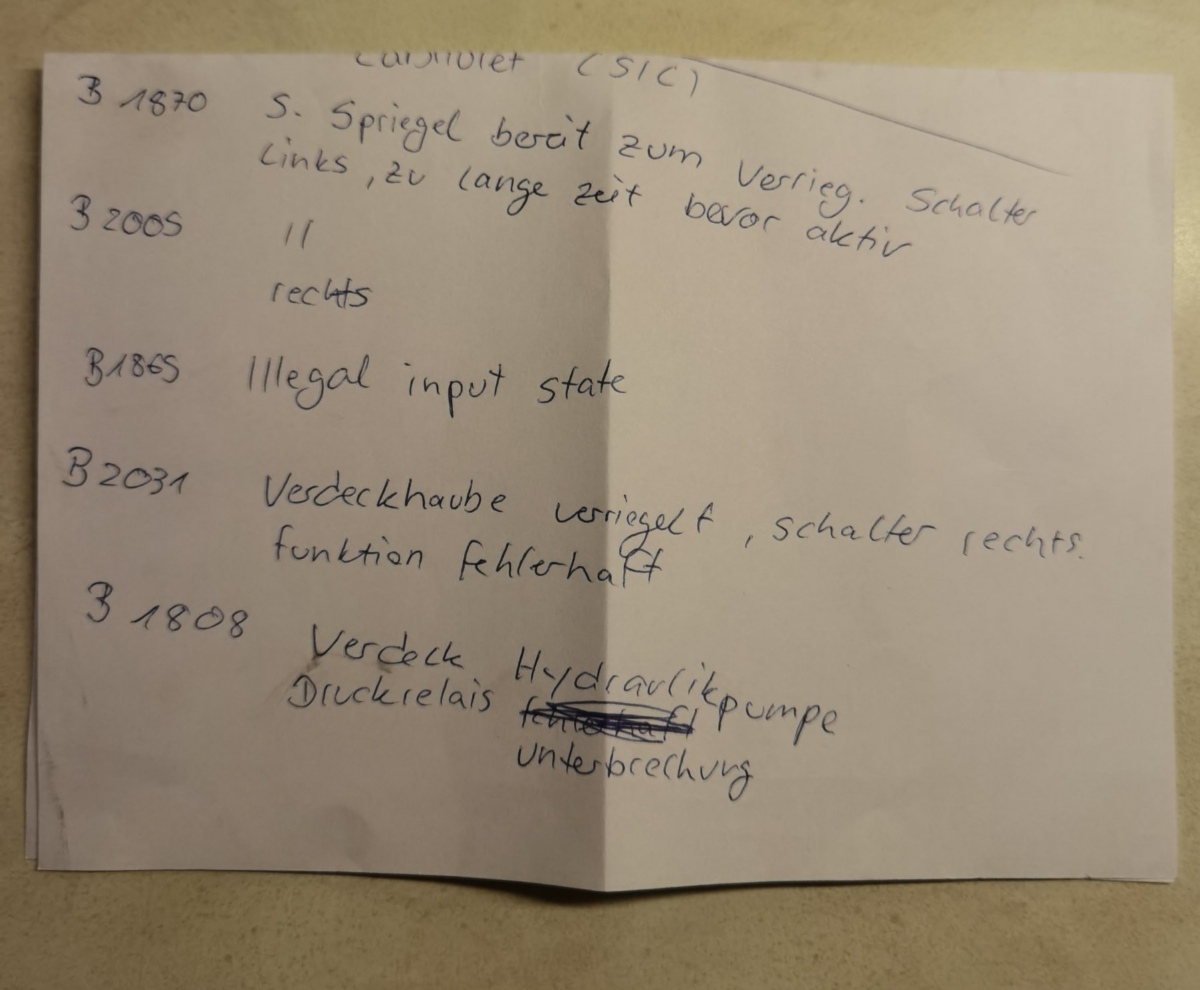 Cabriolet (S/C)
B 1870 5. Spriegel bereit zum Verrieg. Schalter
Links, zu lange zeit bevor aktiv
B 2005 //
rechts
B1865 Illegal input state
B 2031 Verdeckhaube verriegelt, schalter rechts.
funktion fehlerhaft
B 1808 Verdeck Hydraulikpumpe
Druckrelais
unterbrechung